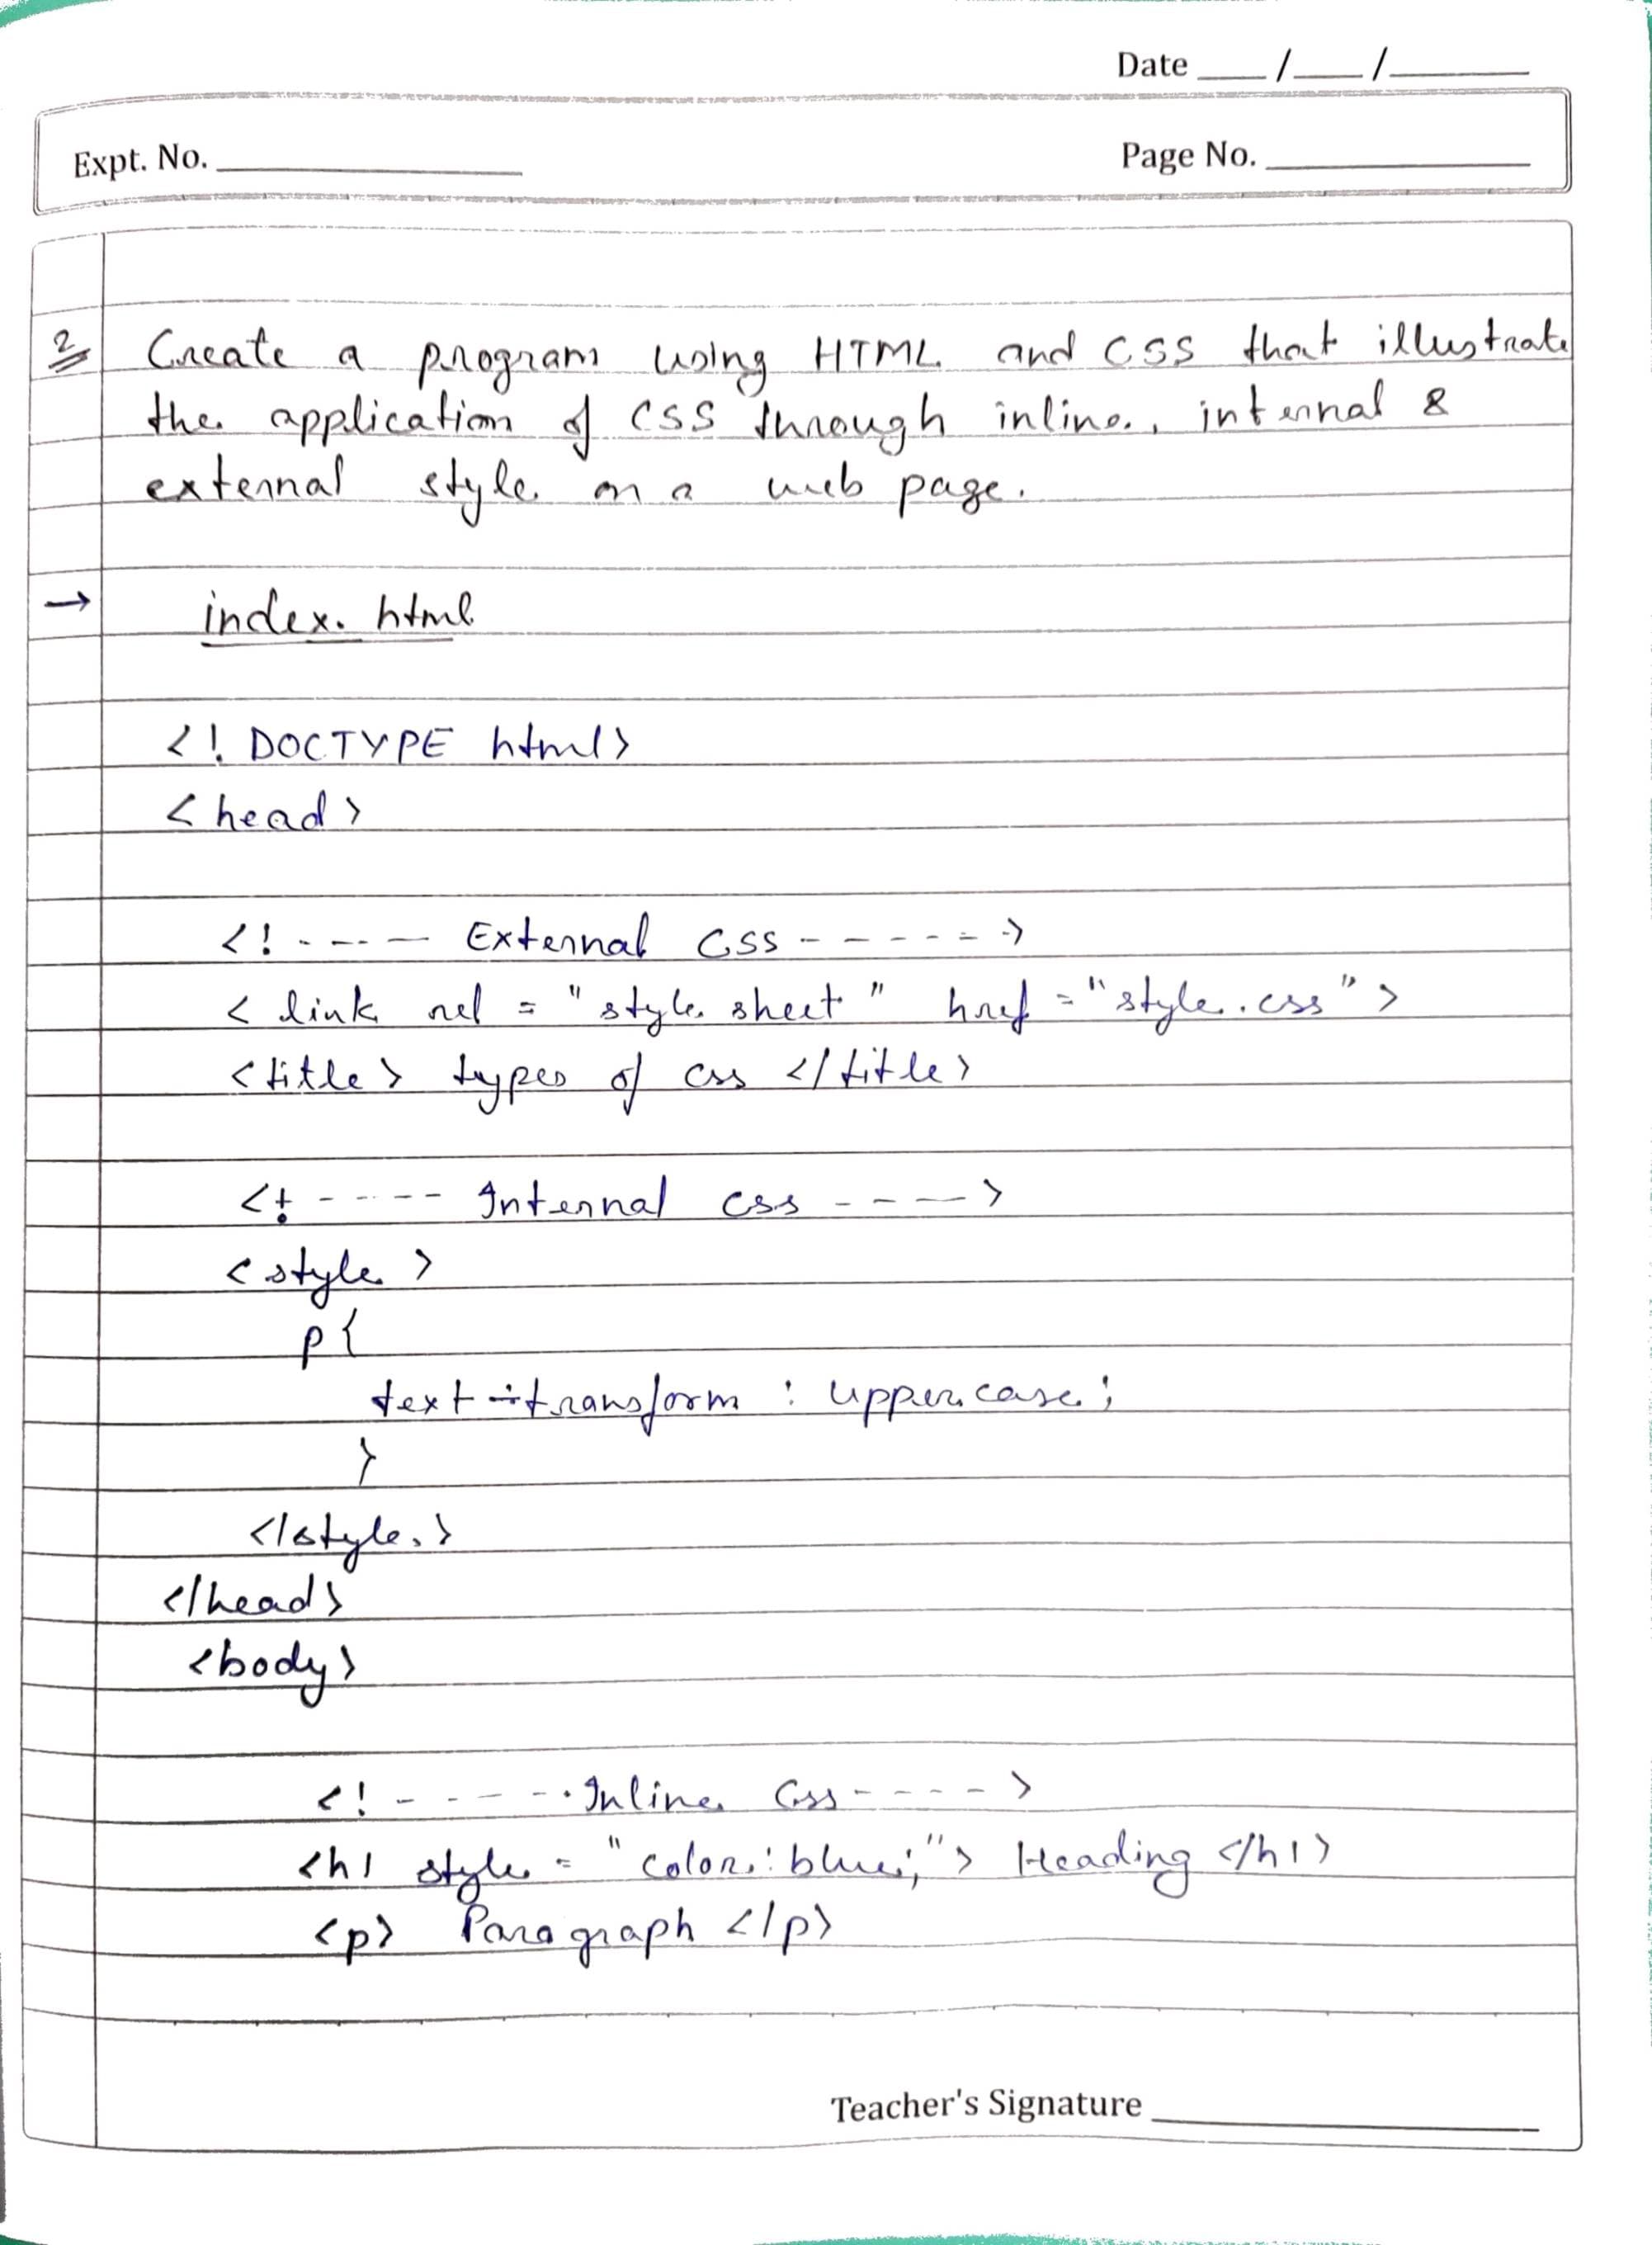 Date ___/___/______
Expt. No. __________
Page No. __________
2 Create a program using HTML and CSS that illustrate
the application of CSS through inline, internal &
external style on a web page.
→ index.html
<! DOCTYPE html>
<head>
<! ----- External CSS ------>
< link rel = "style sheet" href = "style.css" >
<title> types of css </title>
<! ----- Internal css ---->
<style>
p{
text-transform : uppercase;
}
</style>
</head>
<body>
<! ------ Inline Css ---->
<h1 style = "color: blue;"> Heading </h1>
<p> Paragraph </p>
Teacher's Signature __________